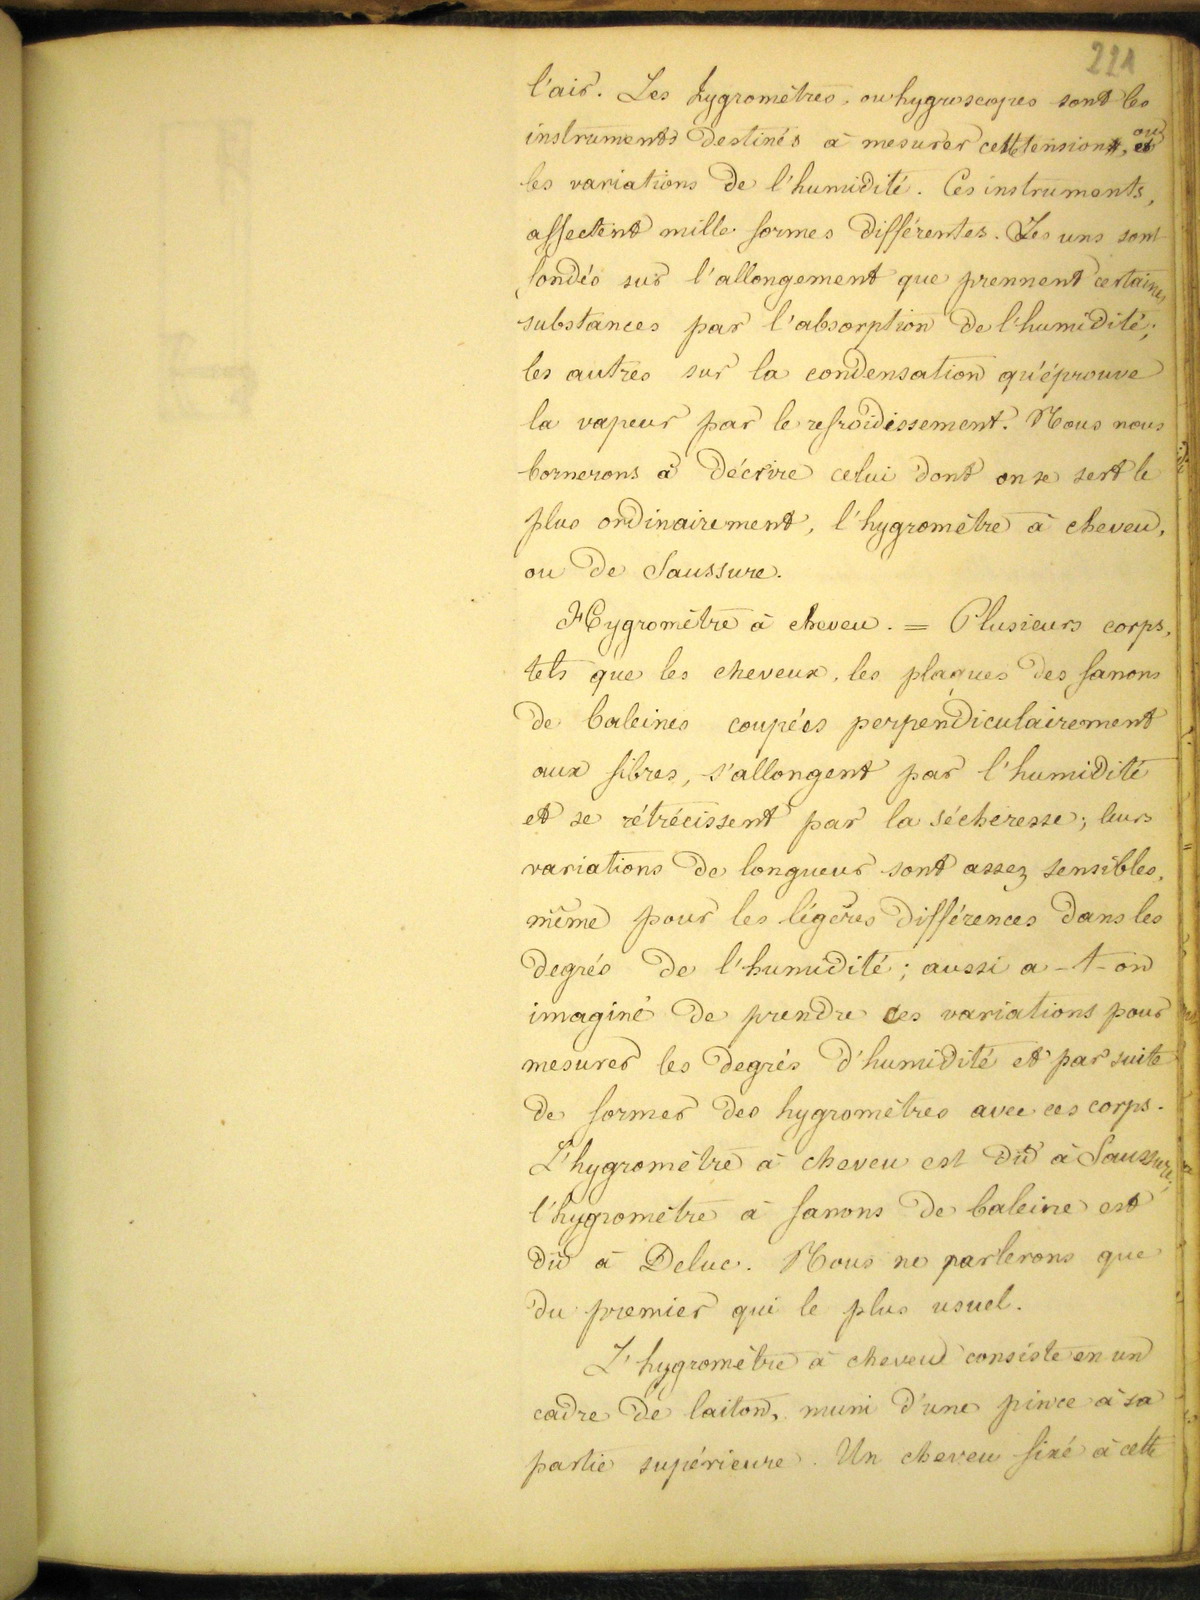 221
l'air. Les hygromètres, ou hygroscopes sont les
instruments destinés à mesurer cette tension, ou
les variations de l'humidité. Ces instruments,
affectent mille formes différentes. Les uns sont
fondés sur l'allongement que prennent certaines
substances par l'absorption de l'humidité;
les autres sur la condensation qu'éprouve
la vapeur par le refroidissement. Nous nous
bornerons à décrire celui dont on se sert le
plus ordinairement, l'hygromètre à cheveu,
ou de Saussure.
Hygromètre à cheveu. = Plusieurs corps,
tels que les cheveux, les plaques des fanons
de baleines coupées perpendiculairement
aux fibres, s'allongent par l'humidité
et se rétrécissent par la sécheresse; leurs
variations de longueur sont assez sensibles,
même pour les légères différences dans les
degrés de l'humidité; aussi a-t-on
imaginé de prendre ces variations pour
mesurer les degrés d'humidité et par suite
de former des hygromètres avec ces corps.
L'hygromètre à cheveu est dû à Saussure;
l'hygromètre à fanons de baleine est
dû à Deluc. Nous ne parlerons que
du premier qui le plus usuel.
L'hygromètre à cheveu consiste en un
cadre de laiton, muni d'une pince à sa
partie supérieure. Un cheveu fixé à cette